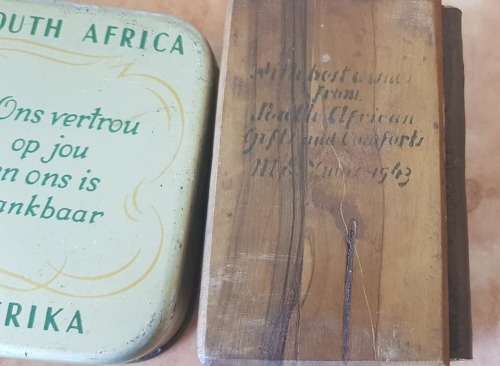 OUTH AFRICA
Ons vertrou
op jou
en ons is
ankbaar
RIKA
With best wishes
from
South African
Gifts and Comforts
1943